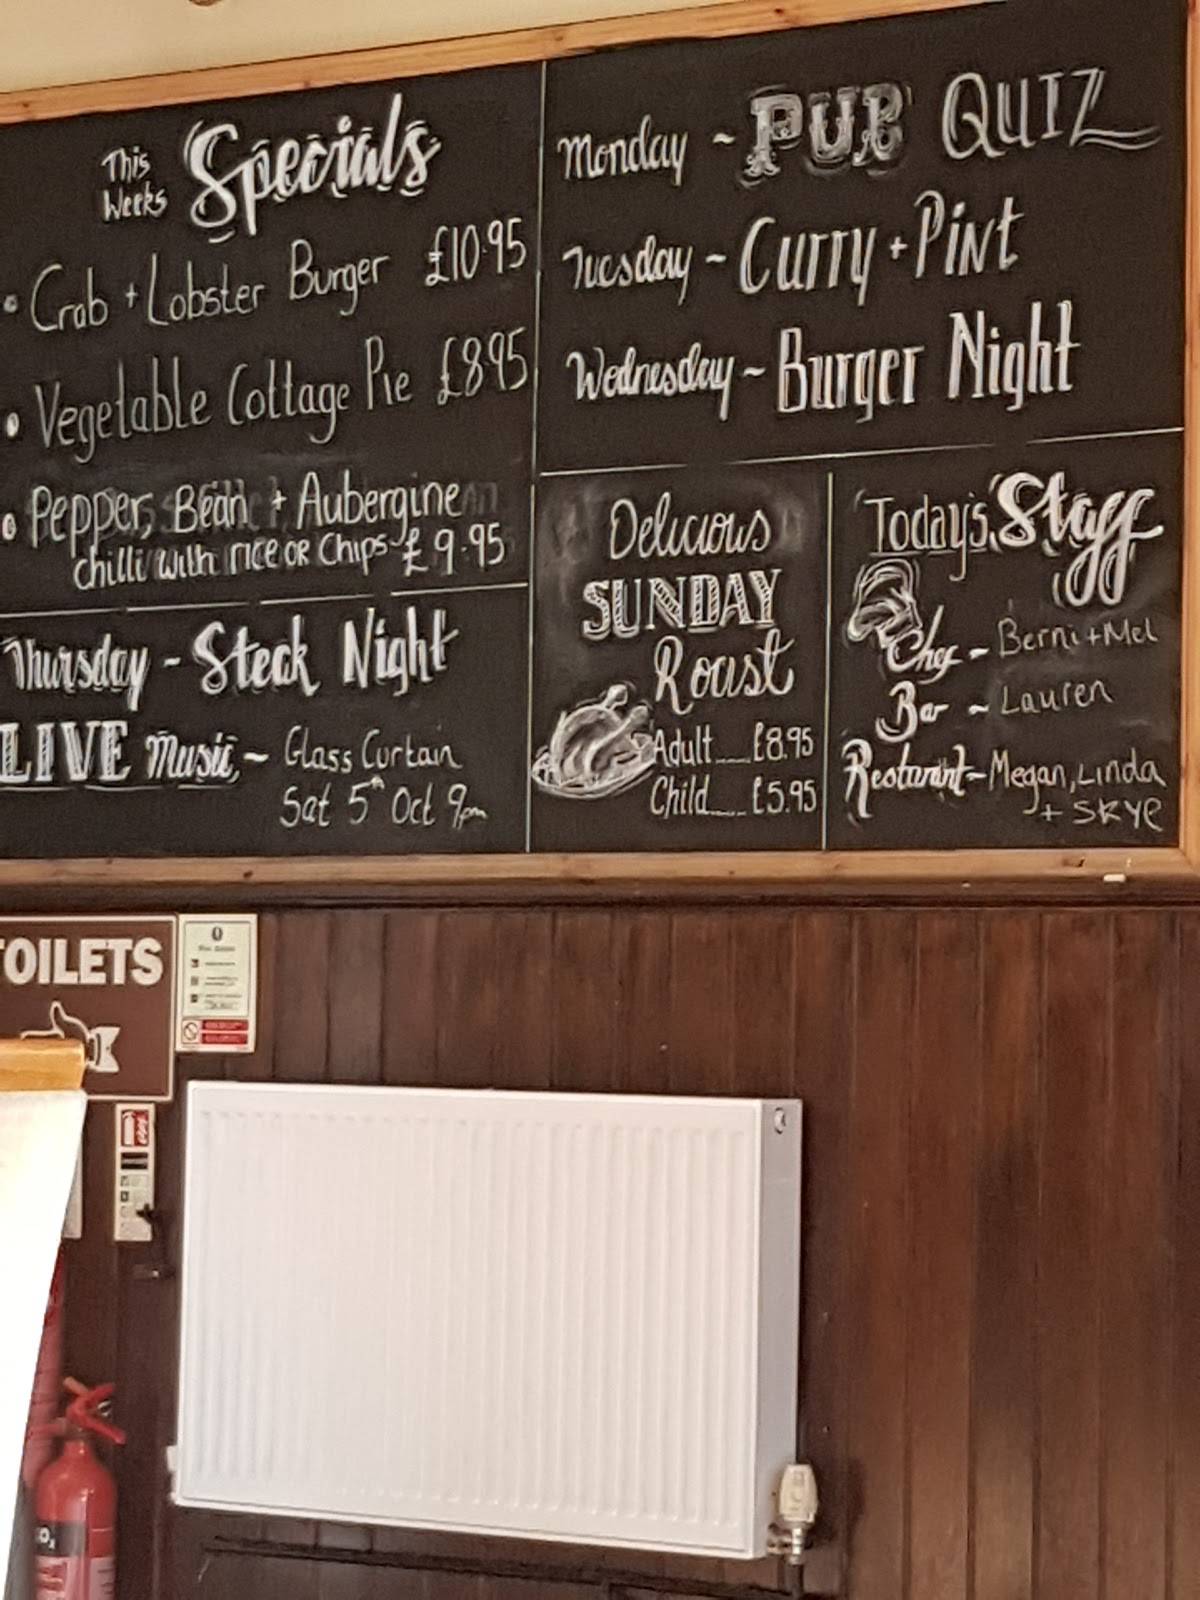 This
Weeks Specials
• Crab + Lobster Burger £10.95
• Vegetable Cottage Pie £8.95
• Pepper, Bean + Aubergine
chilli with rice or Chips £9.95
Thursday ~ Steak Night
LIVE Music ~ Glass Curtain
Sat 5th Oct 9pm
Monday ~ PUB QUIZ
Tuesday ~ Curry + Pint
Wednesday ~ Burger Night
Delicious
SUNDAY
Roast
Adult.....£8.95
Child.....£5.95
Today's Staff
Chef ~ Berni + Mel
Bar ~ Lauren
Restaurant ~ Megan, Linda
+ SKYE
TOILETS